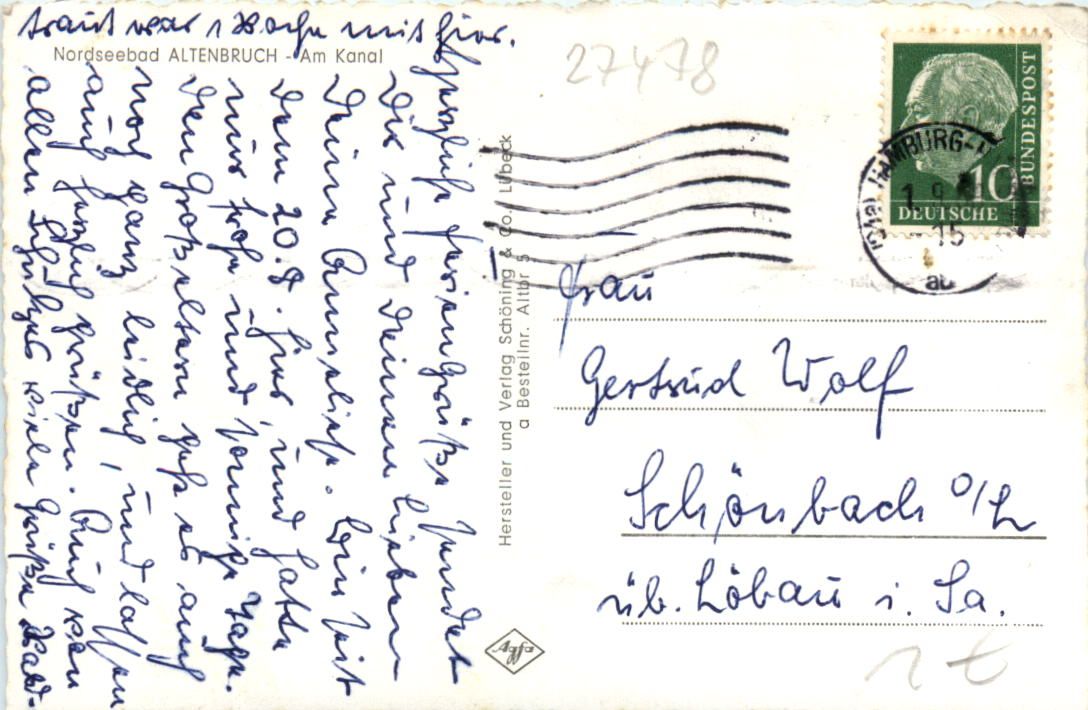 Herzliche Feriengrüße sendet
Dir und Deinen lieben
Deine Anneliese. Bin seit
dem 20.8. hier, und hatte
nur frohe und sonnige Tage.
Den Großeltern geht es auch
noch ganz leidlich, und lassen
auch herzlich grüßen. Auch von
allen Schulzes viele Grüße. Wald-
traut war 1 Woche mit hier.
Nordseebad ALTENBRUCH - Am Kanal
Hersteller und Verlag Schöning & Co., Lübeck
a Bestellnr. Altbr 5
Agfa
27478
DEUTSCHE
BUNDESPOST
10
HAMBURG
1. 9.
- 15
Frau
Gertrud Wolf
Schönbach O/L
üb. Löbau i. Sa.